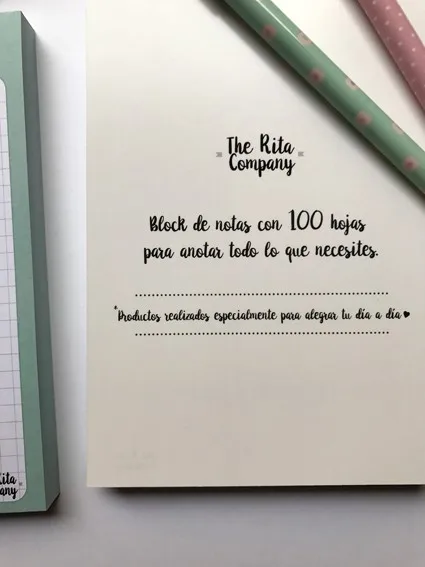 The Rita
Company
Block de notas con 100 hojas
para anotar todo lo que necesites.
*Productos realizados especialmente para alegrar tu día a día♥